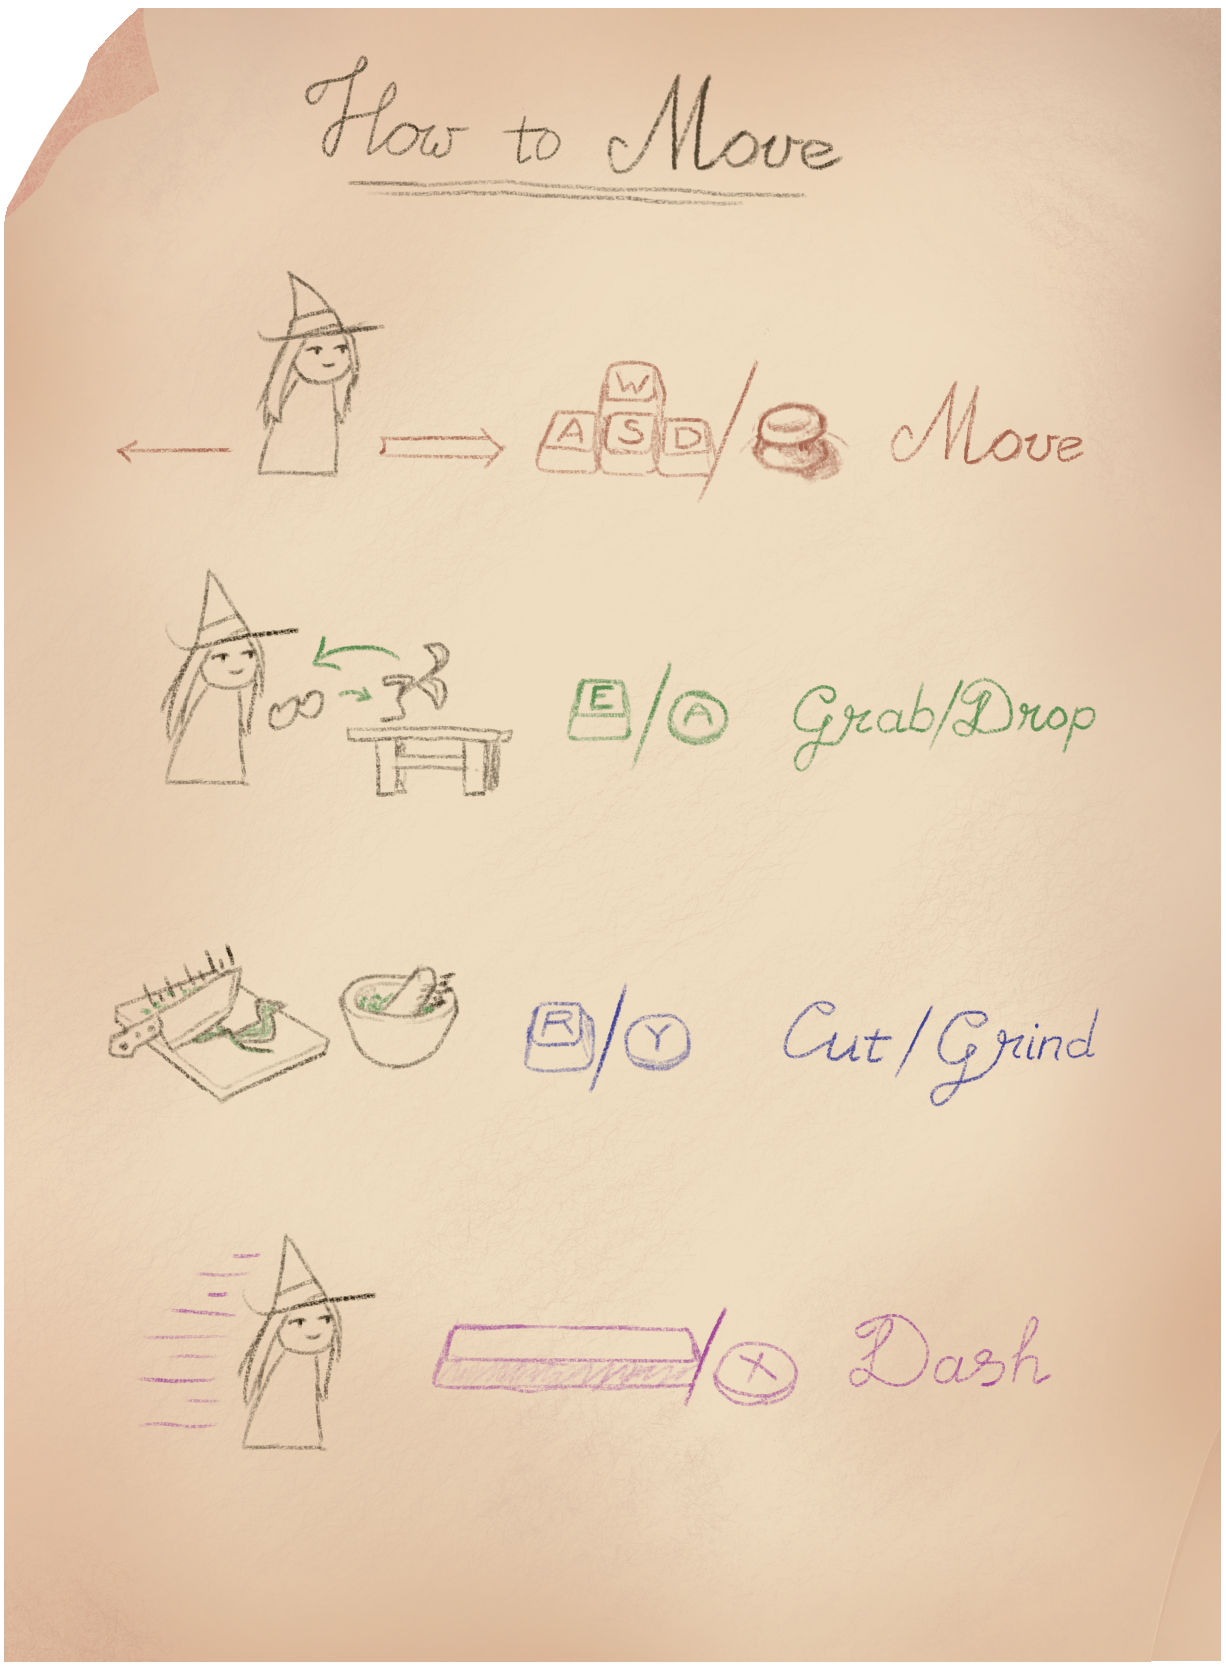 How to Move
W
A S D / Move
E / A Grab/Drop
R / Y Cut/Grind
/ X Dash